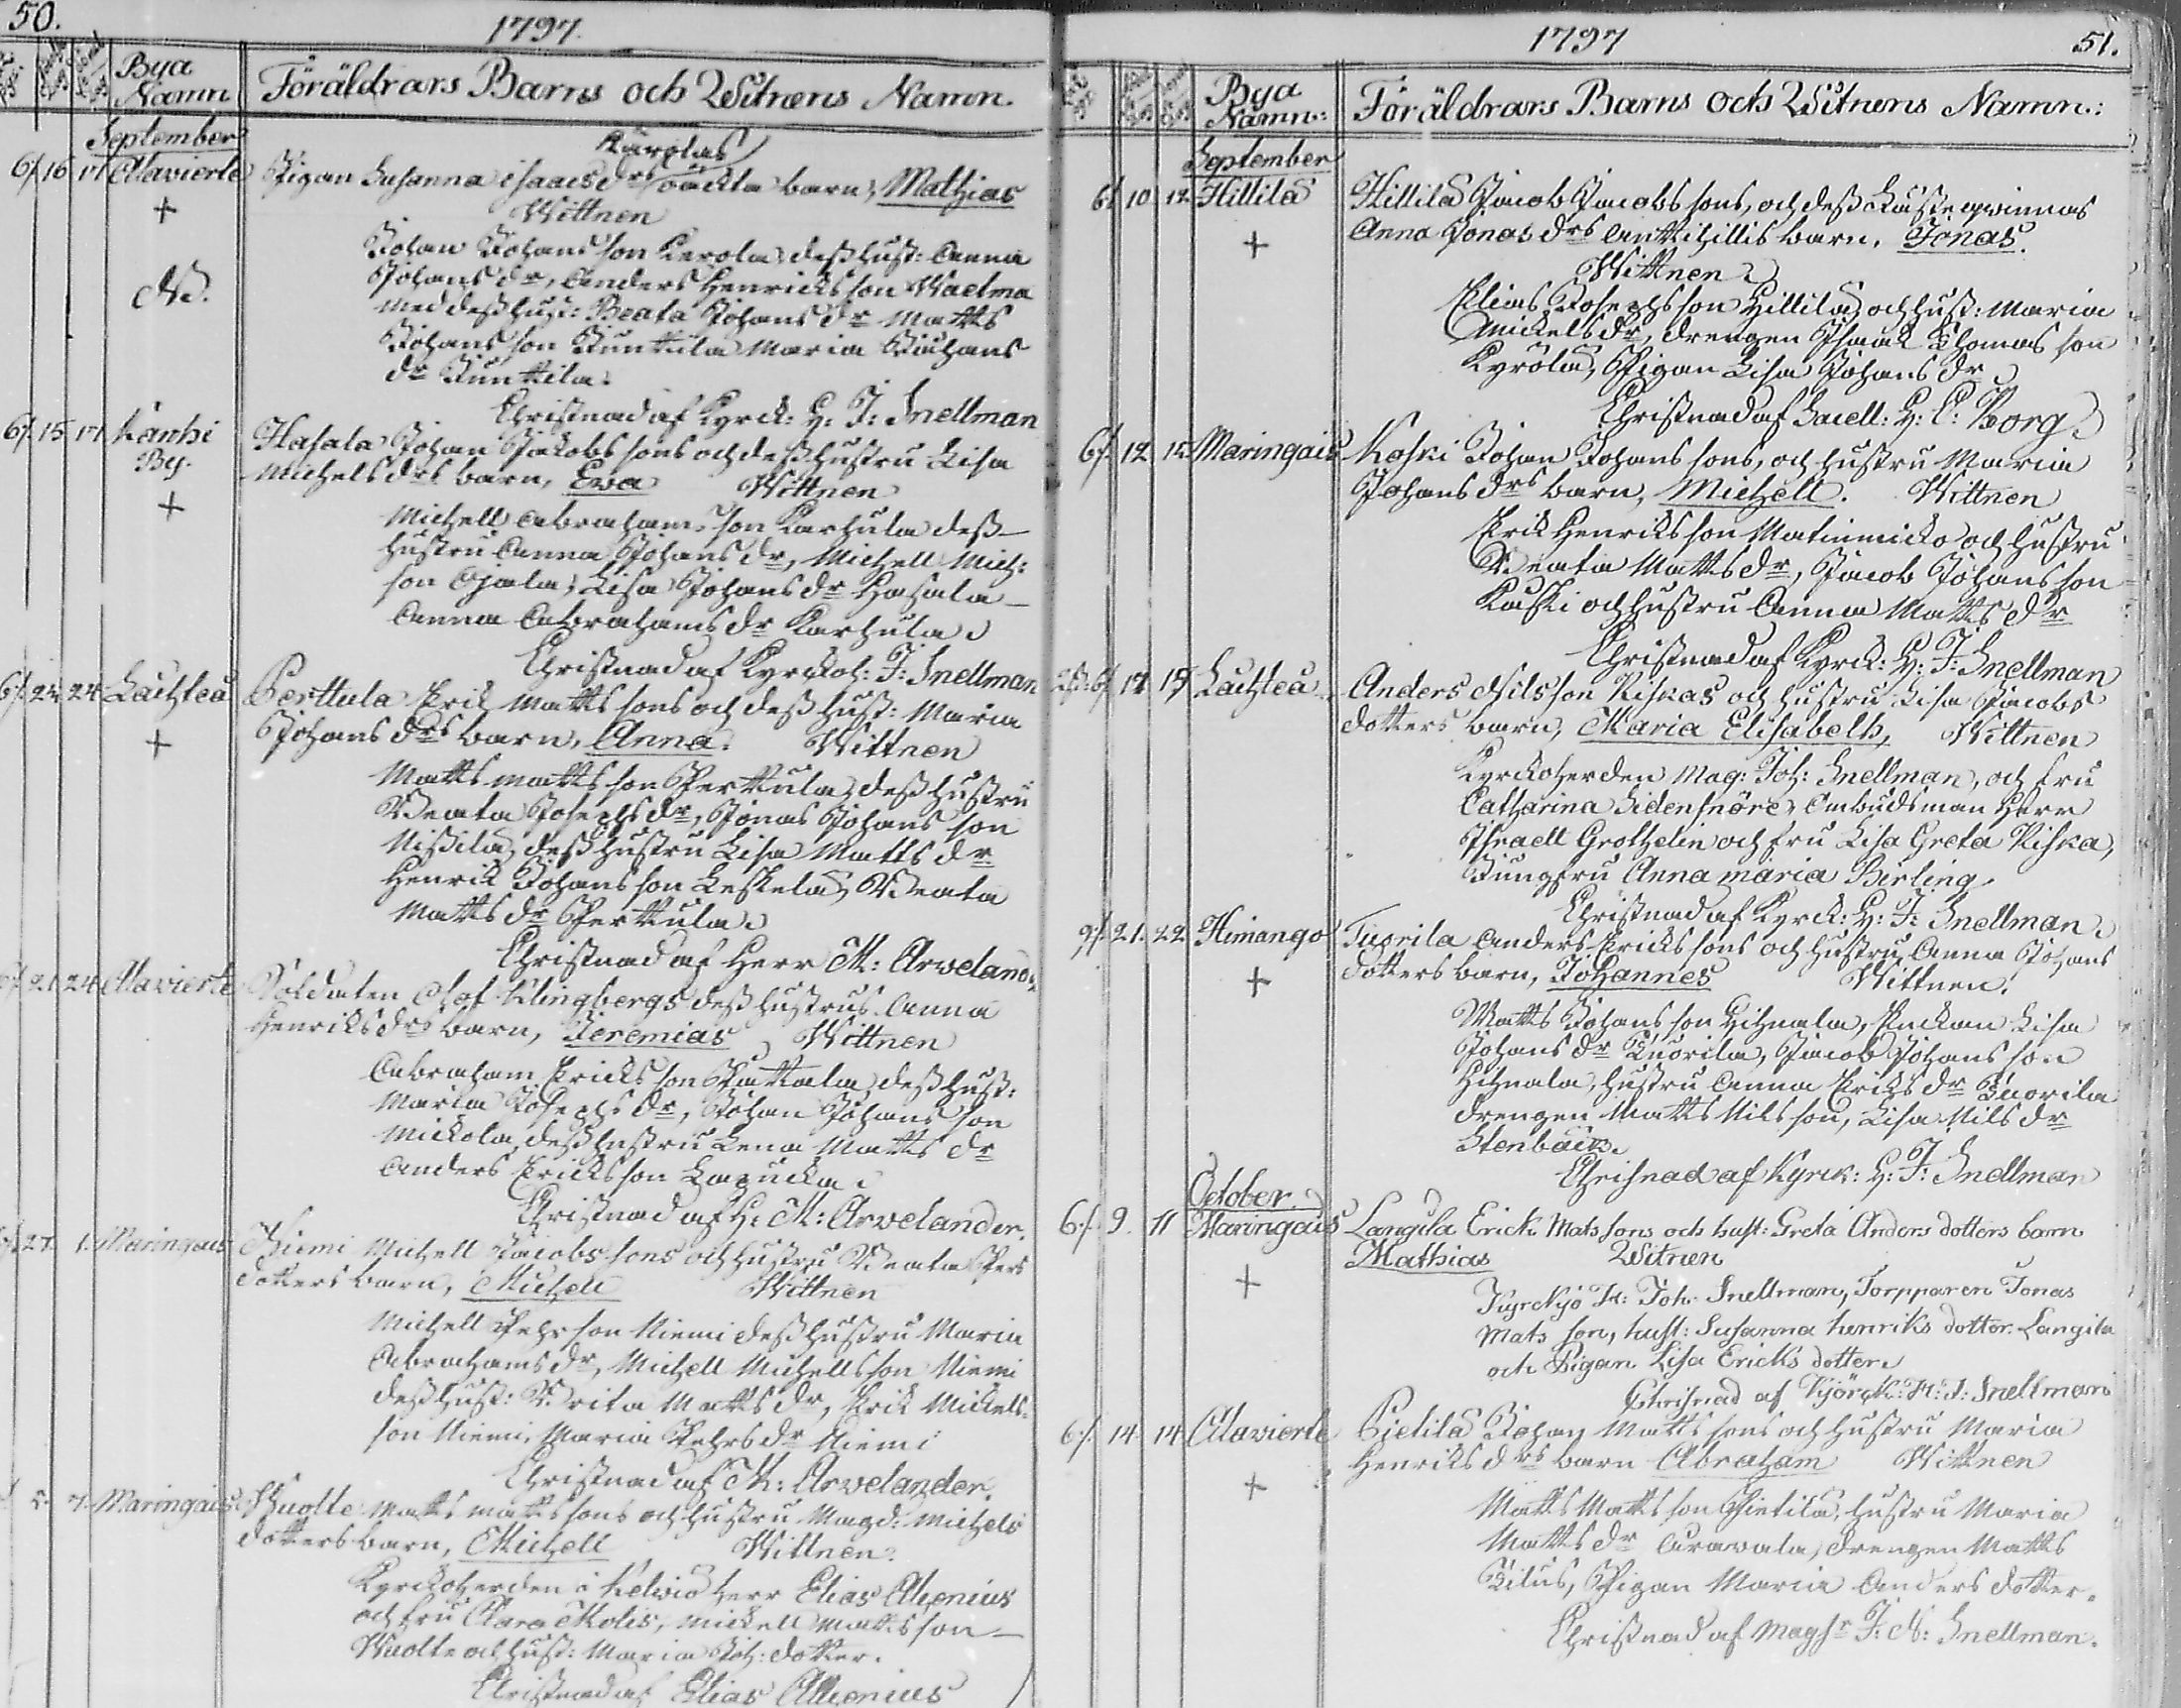 50.
1797.
Bya Namn
Föräldrars Barns och Witnens Namn.
September
Kärolas
6/. 16 17 Alavierte Pigan Susanna Isaacs drs oäckta barn, Mathias
+ Wittnen
Johan Johans son Kerola, dess hust: Anna
Johans dr, Anders Henricks son Waelma
N.
med dess hust: Beata Johans dr Matts
Johans son Junttila Maria Johans
dr Junttila.
Christnad af Kyrck: H: J: Snellman
6/. 15 17 Kanhi Hasala Johan Jakobs sons och dess hustru Lisa
By. Michels drs barn, Eva Wittnen
+ Michell Abrahams son Karhula dess
hustru Anna Johans dr, Michell Mich:
son Ojala, Lisa Johans dr Hasala
Anna Abrahams dr Karhula
Christnad af Kyrckoh: J: Snellman
6/. 24 24 Lachteå Perttula Erik Matts sons och dess hust: Maria
+ Johans drs barn, Anna. Wittnen
Matts Matts son Perttula, dess hustru
Beata Josephs dr, Jonas Johans son
Nissilä, dess hustru Lisa Matts dr
Henrik Johans son Leskelä, Beata
Matts dr Perttula
Christnad af Herr M: Arvelander
21 24 Alavierte Soldaten Olof Klingbergs dess hustrus Anna
Henriks drs barn, Jeremias Wittnen
Abraham Ericks son Pattala, dess hust:
Maria Josephs dr, Johan Johans son
Mickola, dess hustru Lena Matts dr
Anders Ericks son
Christnad af H: M: Arvelander.
27 1. Maringais Niemi Michell Jacobs sons och hustru Beata Pers
dotters barn, Michell Wittnen
Michell Pehrson Niemi dess hustru Maria
Abrahams dr, Michell Michells son Niemi
dess hust: Brita Matts dr, Erik Mickels
son Niemi, Maria Pehrs dr Niemi
Christnad af M: Arvelander.
5. 7. Maringais Wuolte Matts Matts sons och hustru Magd: Michels
dotters barn, Michell Wittnen.
Kyrckoherden i Kelviå Herr Elias Alcenius
och fru Clara Molis, Mickell Matts son
Wuolte och hust: Maria Joh: dotter.
Christnad af Elias Alcenius
1797
51.
Bya Namn:
Föräldrars Barns och Witnens Namn:
September
6/ 10 12 Hillilä Hillilä Jacob Jacobs sons, och dess Läste qwinnas
+ Anna Jonas drs Anttihillis barn, Jonas.
Wittnen
Elias Josephs son Hillilä och hust: Maria
Mickels dr, drengen Isaak Thomas son
Kyrölä, Pigan Lisa Johans dr
Christnad af Sacell: H: C: Borg.
6/. 12 12 Maringais Koski Johan Johans sons, och hustru Maria
Johans drs barn, Michell. Wittnen
Erik Henriks son Matinmicko och hustru
Beata Matts dr, Jacob Johans son
Koski och hustru Anna Matts dr
Christnad af Kyrck: H: J: Snellman
17 19 Lachteå Anders Nilsson Kiskas och hustru Lisa Jacobs
dotters barn, Maria Elisabeth, Wittnen
Kyrckoherden Mag: Joh: Snellman, och fru
Catharina Sidensnöre, Ombudsman Herr
Israell Grothelin och fru Lisa Greta Kiska,
Jungfru Anna Maria Birling
Christnad af Kyrck: H: J: Snellman
9/. 21. 22 Himango Tuorila Anders Ericks sons och hustru Anna Johans
+ dotters barn, Johannes Wittnen.
Matts Johans son Hihnala, Enckan Lisa
Johans dr Tuorila, Jacob Johans son
Hihnala, hustru Anna Ericks dr Tuorila
drengen Matts Nils son, Lisa Nils dr
Stenbäck.
Chrisnad af Kyrk: H: J: Snellman
October.
6/. 9. 11 Maringais Langila Erick Mats sons och hust: Greta Anders dotters barn
Mathias Witnen
+ Kyrckjo H: Joh. Snellman, Torpparen Jonas
Mats son, hust: Susanna henriks dotter Langila
och Pigan Lisa Ericks dotter
Chrisnad af Kyörck: H: J: Snellman
6/. 14 14 Alavierte Pietilä Johan Matts sons och hustru Maria
+ Henriks drs barn Abraham Wittnen
Matts Matts son Pietilä, hustru Maria
Matts dr Aravala, drengen Matts
Titus, Pigan Maria Anders dotter.
Christnad af Magisr J: N: Snellman.